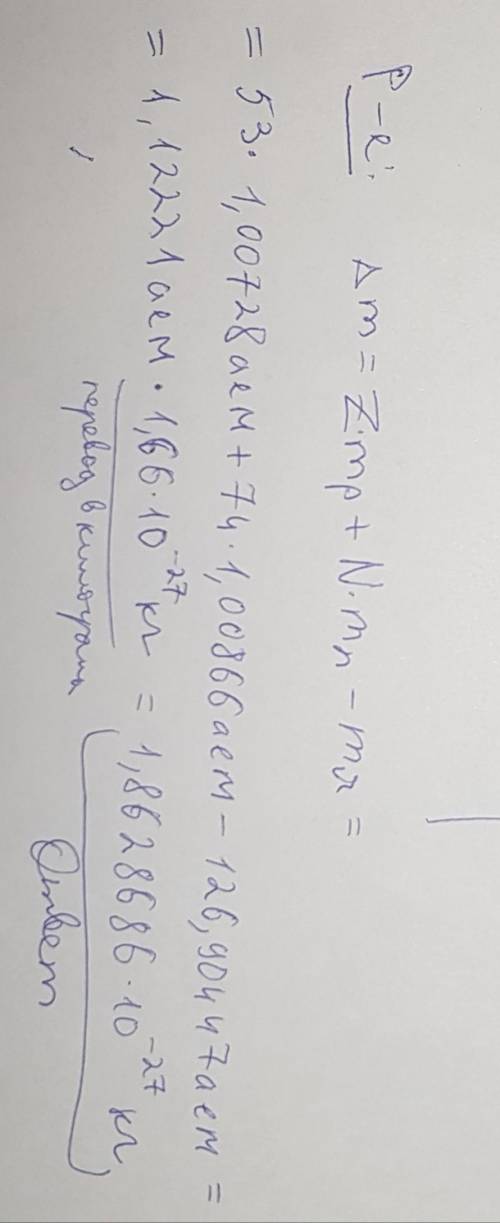 Р-е: Δm = Z·mp + N·mn - mя =
= 53·1,00728 аем + 74·1,00866 аем - 126,90447 аем =
= 1,12221 аем · 1,66·10⁻²⁷ кг = 1,8628686·10⁻²⁷ кг
перевод в килограмы
Ответ